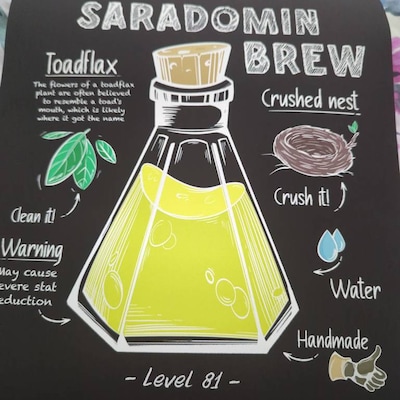 SARADOMIN
BREW
Toadflax
The flowers of a toadflax
plant are often believed
to resemble a toad's
mouth, which is likely
where it got the name
Clean it!
Warning
May cause
evere stat
eduction
Crushed nest
Crush it!
Water
Handmade
- Level 81 -